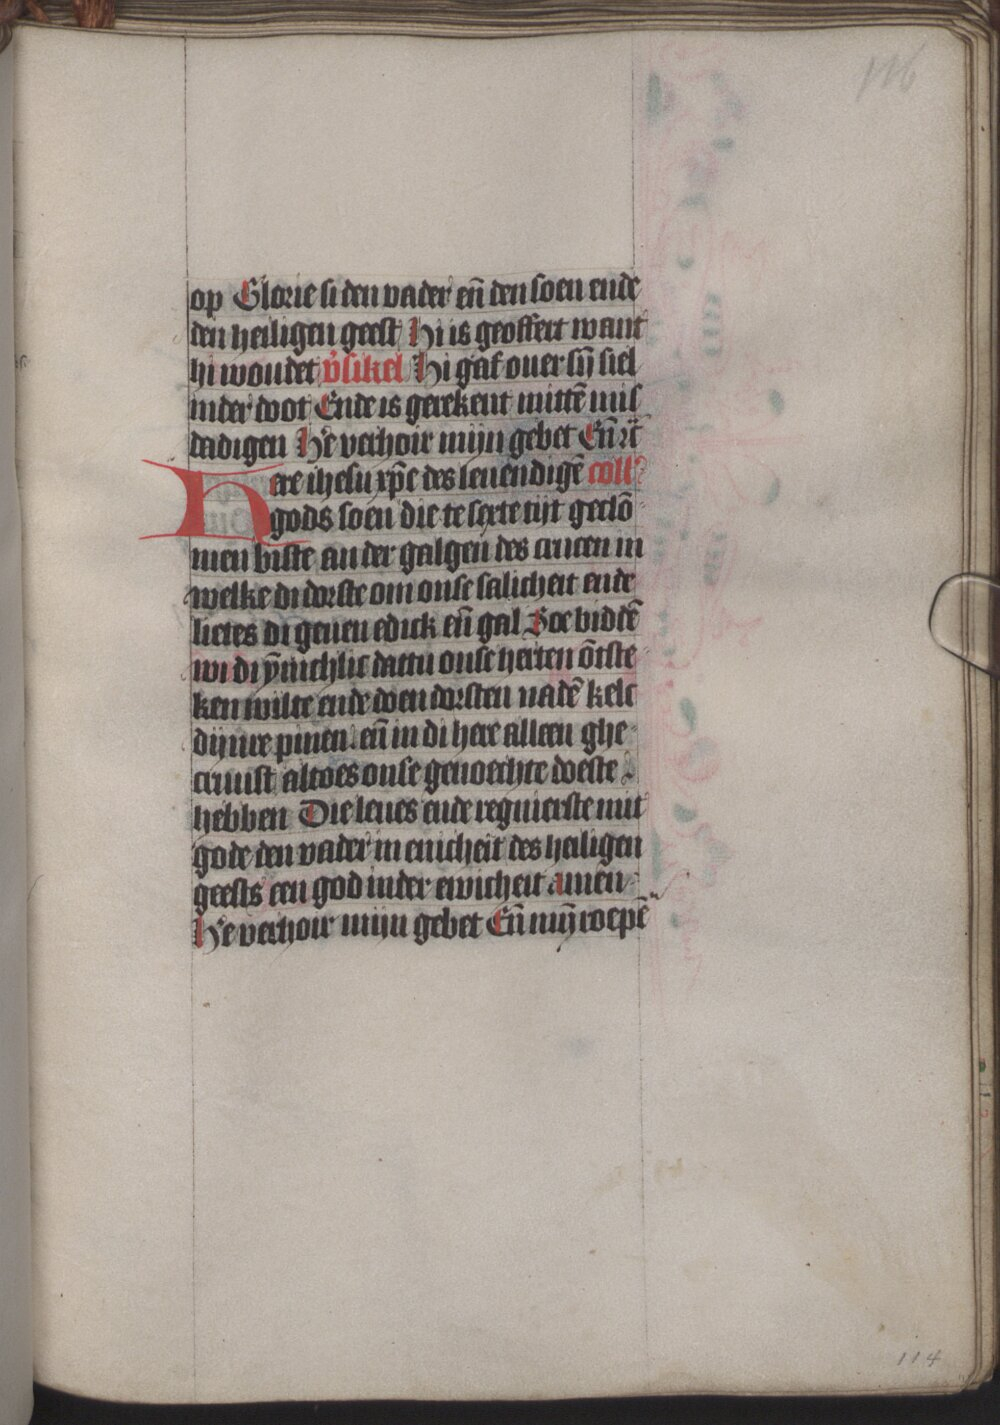 116
op Glorie si den vader en̄ den soen ende
den heiligen geest Hi is geoffert want
hi woudet v̓sikel Hi gaf ouer sij̄ siel
inder doot Ende is gerekent mittē mis
dadigen He᷑ verhoir mijn gebet En̄ rc̄
Here ihesu xp̄e des leuendigē coll᷑
gods soen die te sexte tijt geclō
men biste an der galgen des crucen in
welke di dorste om onse salicheit ende
lietes di geuen edick en̄ gal Soe biddē
wi di ȳnichlic dattu onse herten ōtste
ken wilte ende doen dorsten nadē kelc
dijnre pinen. en̄ in di here alleen ghe
cruust altoes onse genoechte doeste
hebben Die leues ende regnierste mit
gode den vader in enicheit des heiligen
geests een god inder ewicheit amen
He᷑ verhoir mijn gebet En̄ mij̄ roepē
114